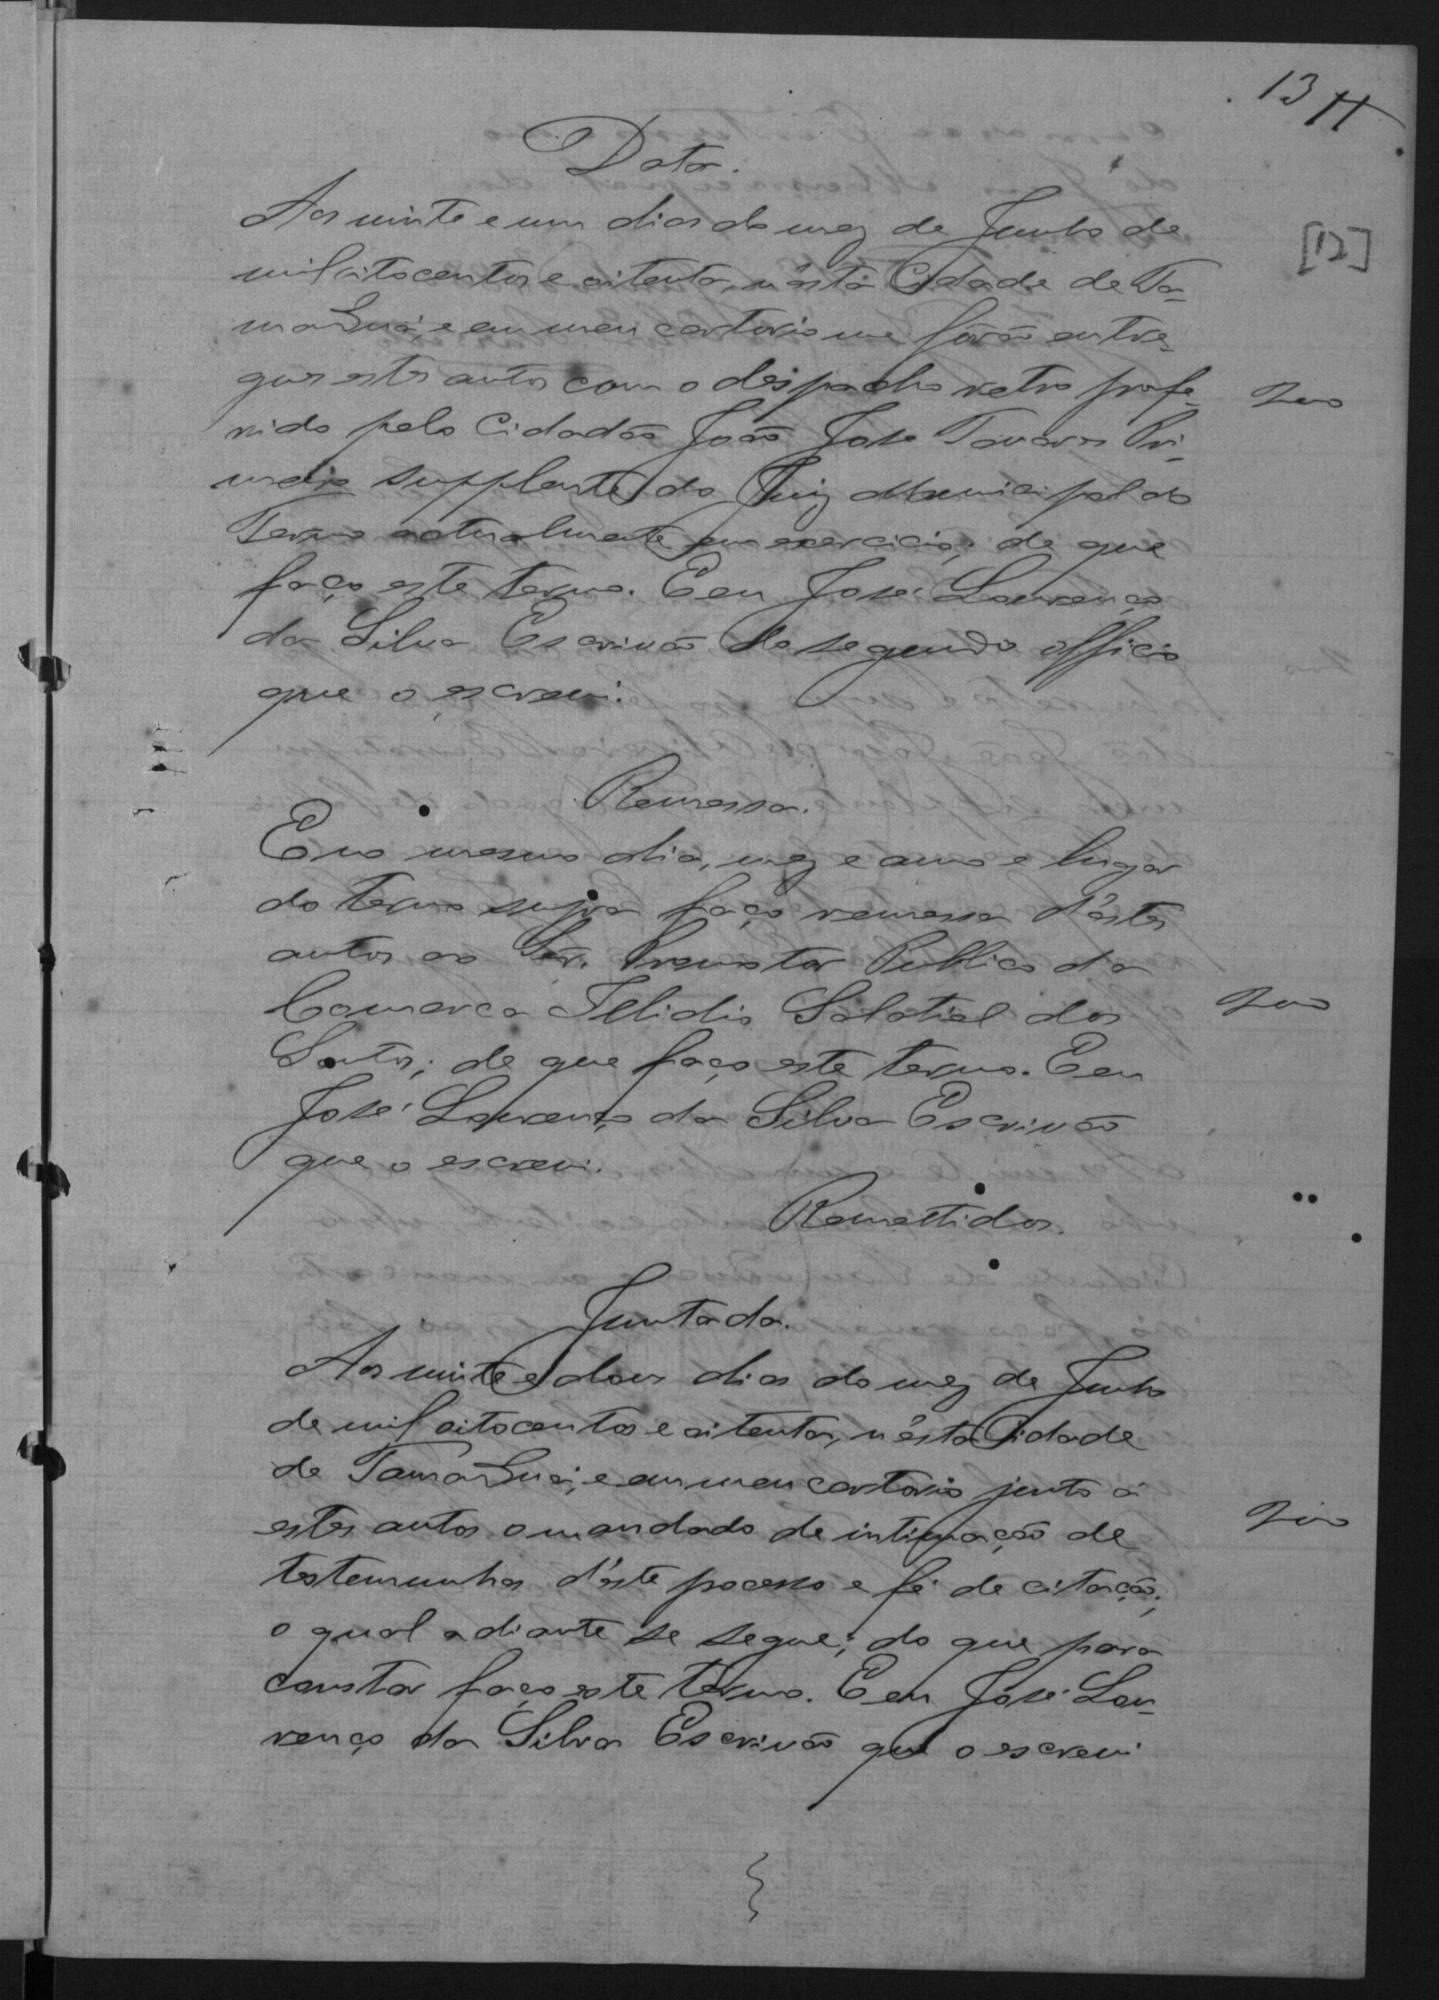 13
Data.
[12]
Aos vinte e um dias do mez de Junho de
mil oitocentos e oitenta, n'ésta Cidade de Ta-
e em meu cartorio me fôrão entre-
gues estes autos com o despacho retro profe-
rido pelo Cidadão João José Tavares Pri-
meiro supplente do Juiz Municipal do
Termo actualmente em exercicio; de que
faço este termo. E eu José Lourenço
da Silva Escrivão do segundo officio
que o escrevi.
Remessa.
E no mesmo dia, mez e anno e lugar
do termo supra faço remessa d'éstes
autos ao Snr. Promotor Publico da
Comarca dos
Santos; de que faço este termo. E eu
José Lourenço da Silva Escrivão
que o escrevi.
Remettidos.
Juntada.
Aos vinte e dous dias do mez de Junho
de mil oitocentos e oitenta, n'ésta Cidade
de e em meu cartorio junto á
estes autos o mandado de intimação de
testemunhas d'éste processo e fé de citação;
o qual adiante se segue; do que para
constar faço este termo. E eu José Lou-
renço da Silva Escrivão que o escrevi